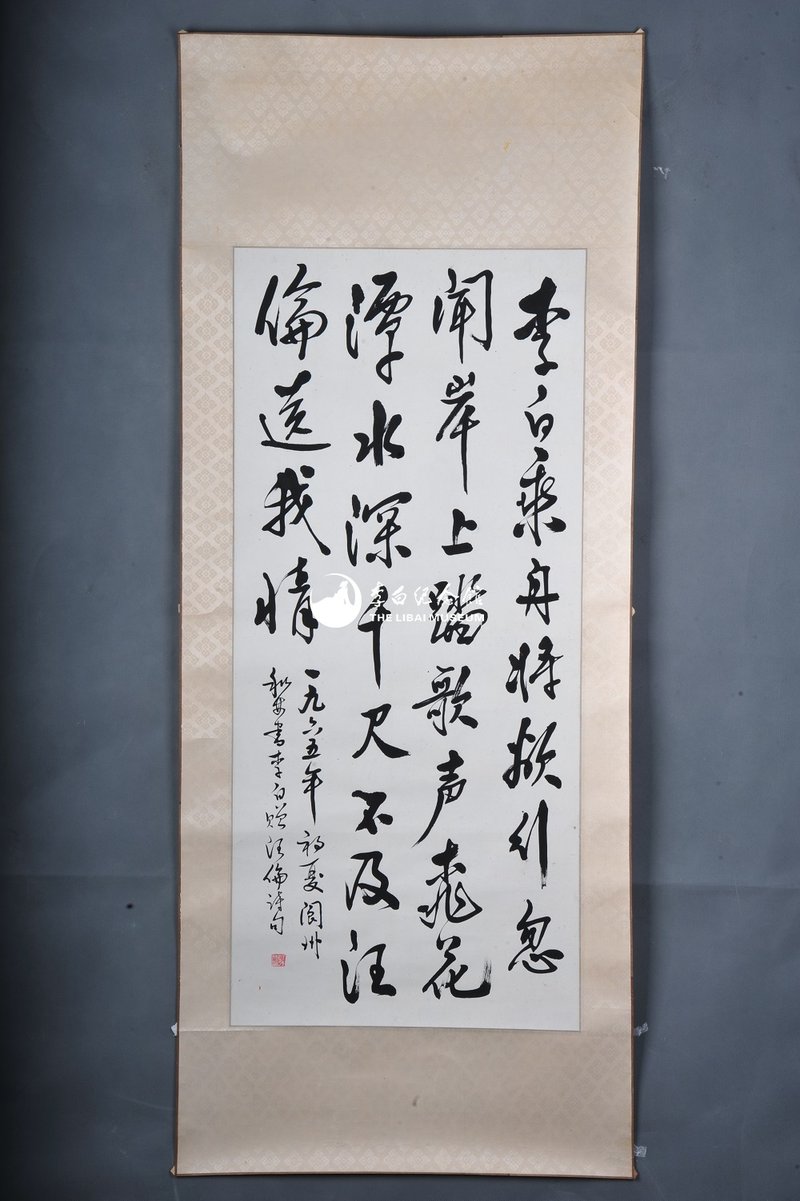 李白乘舟将欲行忽
闻岸上踏歌声桃花
潭水深千尺不及汪
倫送我情
一九六五年初夏阆州
書李白贈汪倫詩句
李白纪念馆
THE LIBAI MUSEUM